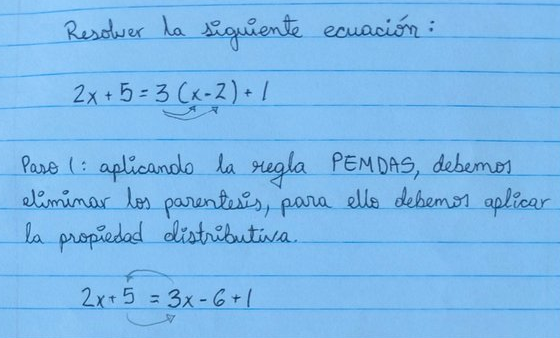 Resolver la siguiente ecuación:
2x + 5 = 3 (x - 2) + 1
Paso 1: aplicando la regla PEMDAS, debemos
eliminar los parentesis, para ello debemos aplicar
la propiedad distributiva.
2x + 5 = 3x - 6 + 1